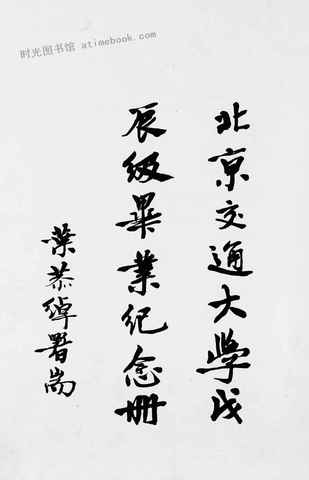 时光图书馆 atimebook.com
北京交通大學戊
辰級畢業紀念冊
葉恭綽署耑